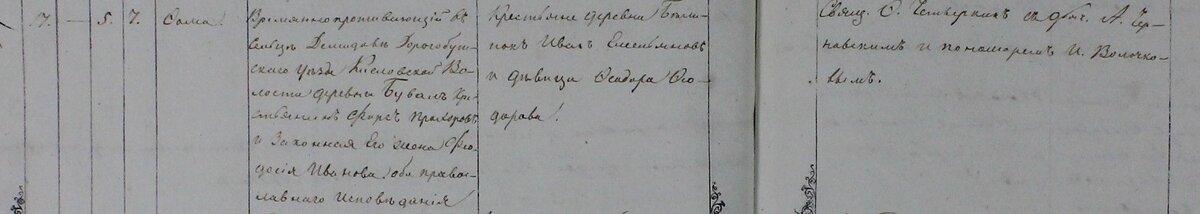 17. — 5. 7. Сома.
Временно проживающій въ
Демидовъ Дорогобуж-
скаго уезда Кисловской Во-
лости деревни Бувакъ Кре-
стьянинъ Фирсъ Прохоровъ
и Законная Его жена Фео-
досія Иванова оба право-
славнаго Исповѣданія
Крестьяне деревни
Иванъ Емельяновъ
и дѣвица Ѳеодора Ѳео-
дорова!
Свящ. О. Четверкинъ съ діак. А. Чер-
навскимъ и пономаремъ И. Волочко-
вымъ.